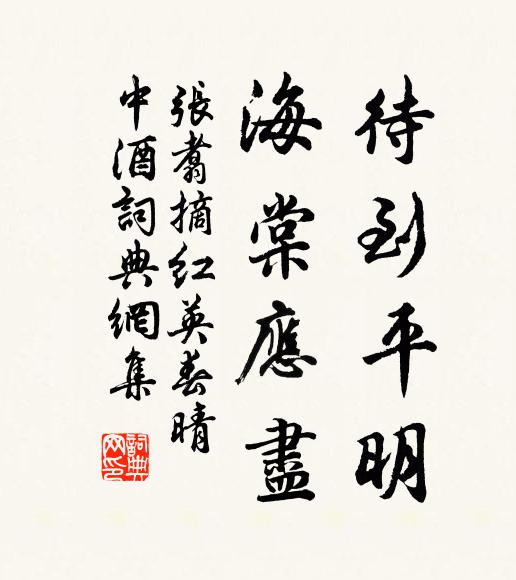 待到平明
海棠應盡
張翥摘紅英春晴
中酒詞典網集
詞典
网印